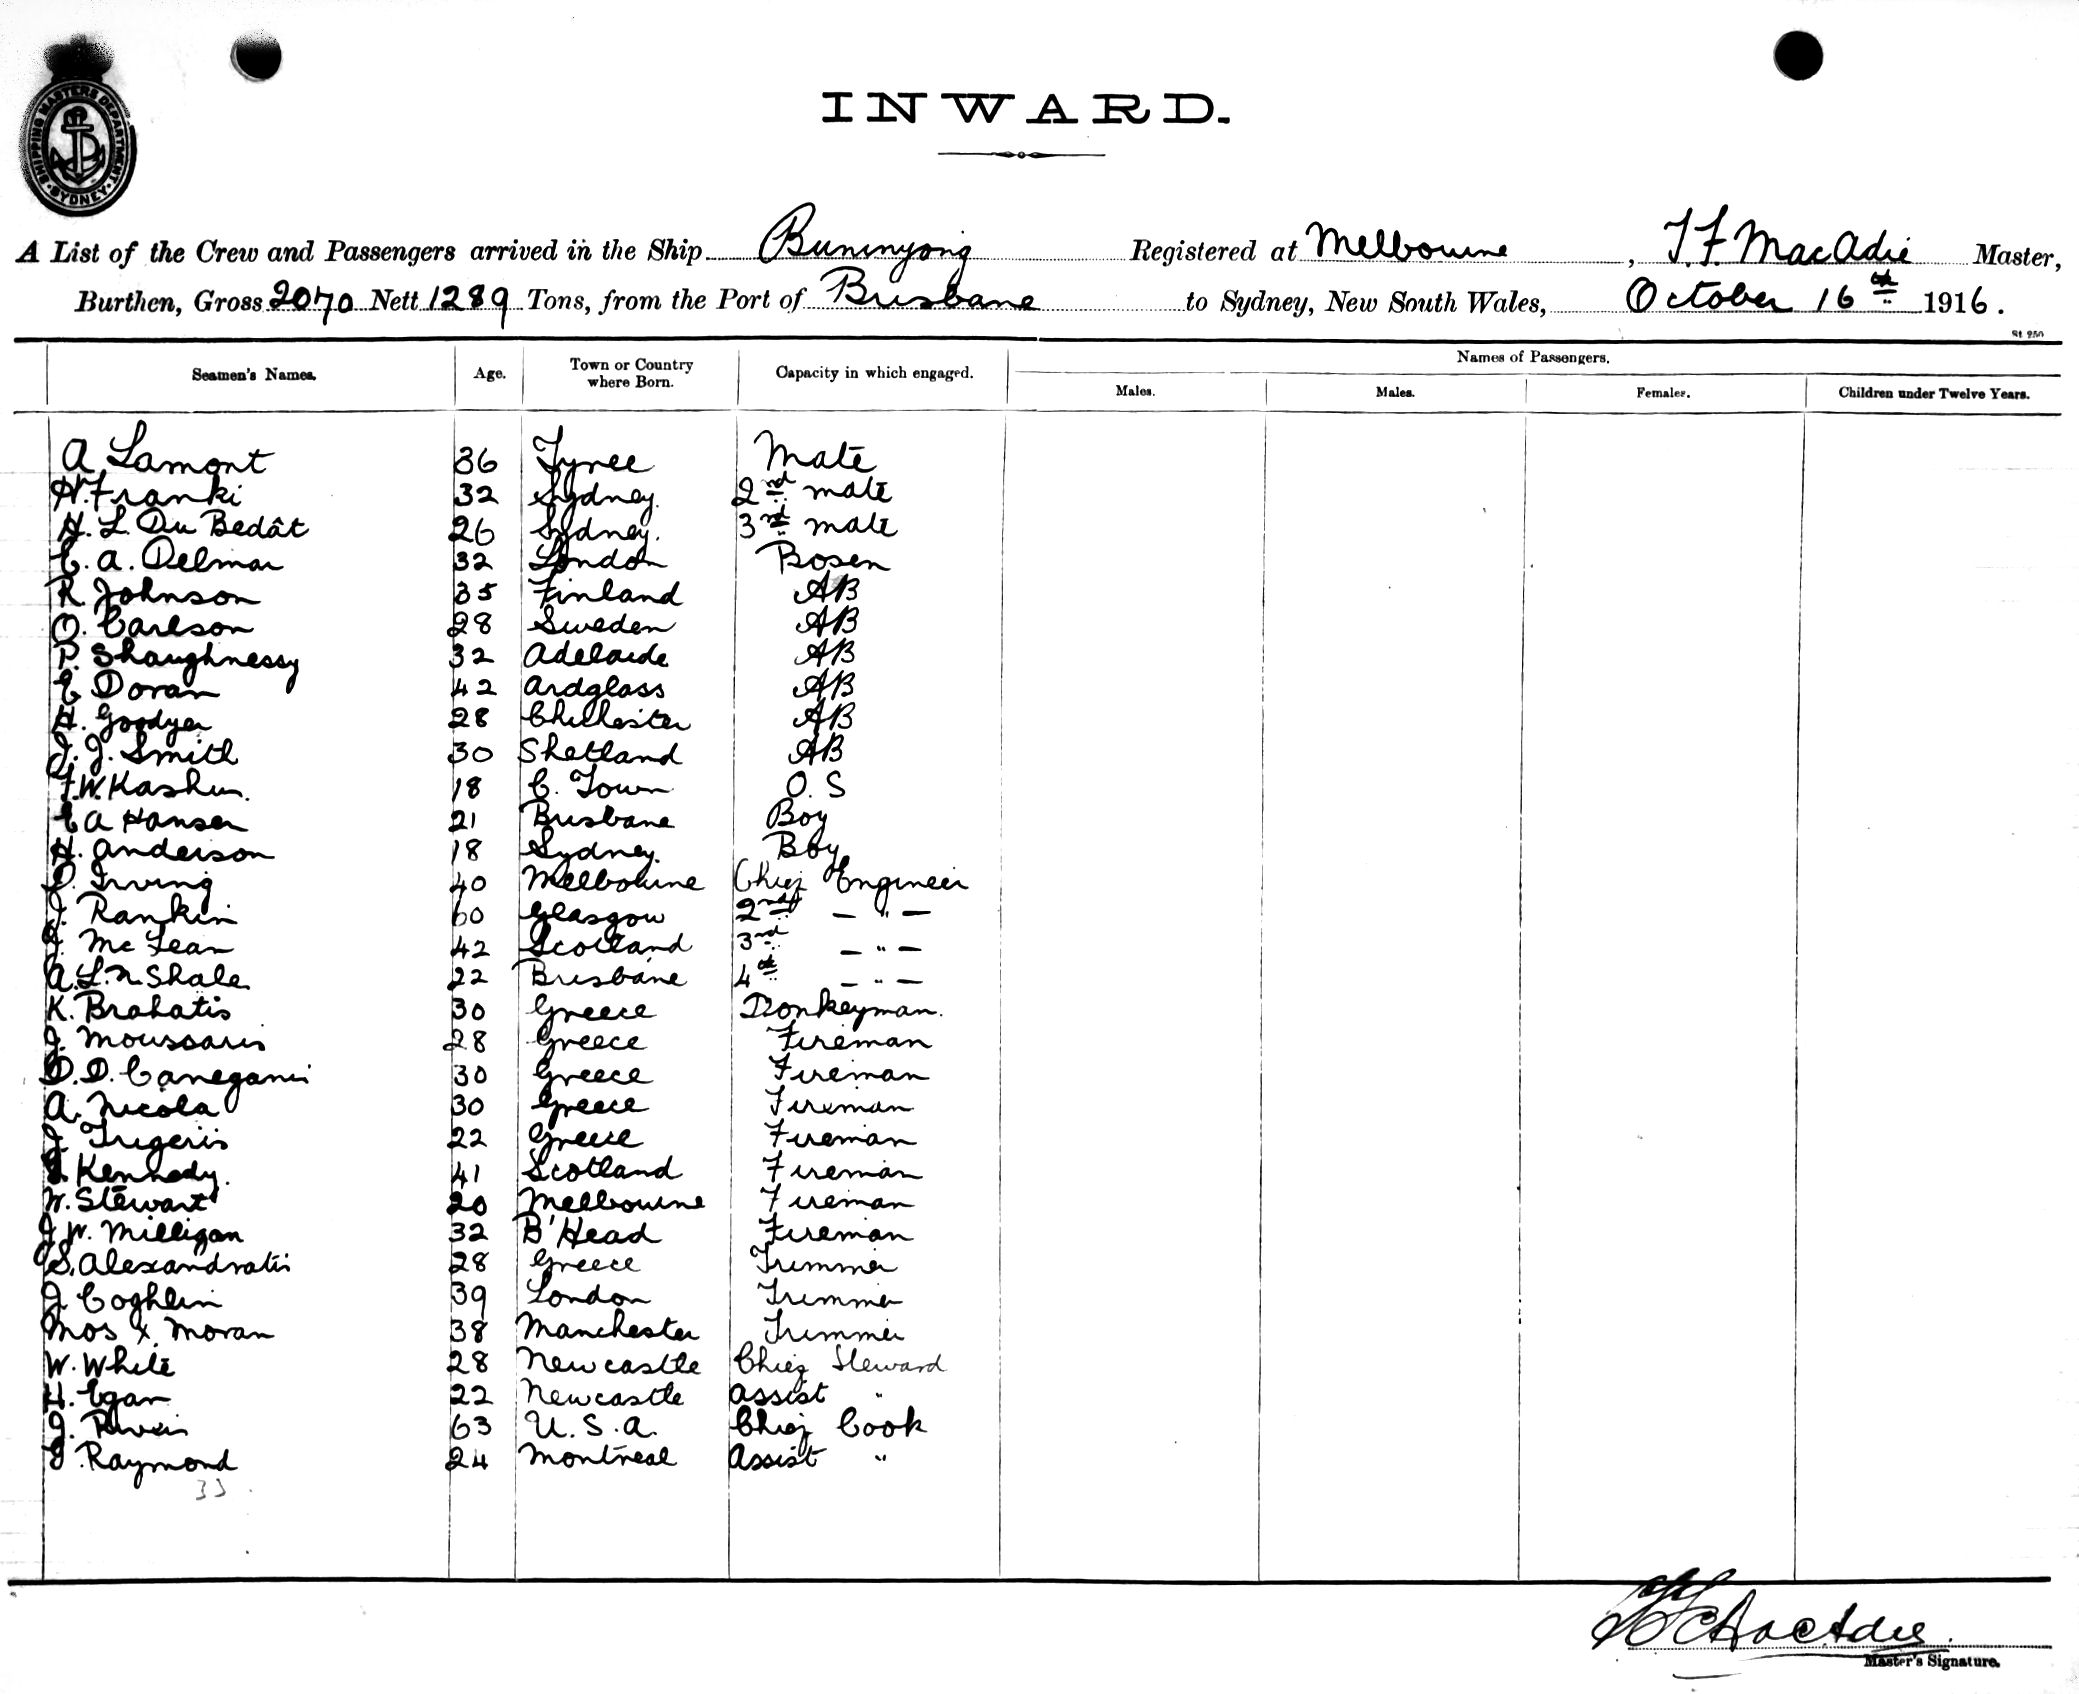 SHIPPING MASTERS DEPARTMENT · SYDNEY ·
INWARD.
A List of the Crew and Passengers arrived in the Ship Buninyong Registered at Melbourne, T. F. MacAdie Master,
Burthen, Gross 2070 Nett 1289 Tons, from the Port of Brisbane to Sydney, New South Wales, October 16th 1916.
St 250
Names of Passengers.
Seamen's Names. Age. Town or Country where Born. Capacity in which engaged. Males. Males. Females. Children under Twelve Years.
A Lamont 36 Tyree Mate
H. Franki 32 Sydney. 2nd mate
H. L. Du Bedât 26 Sydney. 3rd mate
C. A. Delmar 32 London Bosen
R. Johnson 35 Finland AB
O. Carlson 28 Sweden AB
P. Shaughnessy 32 Adelaide AB
E Doran 42 Ardglass AB
H. Goodyer 28 Chichester AB
J. J. Smith 30 Shetland AB
18 C. Town O. S
E A Hansen 21 Brisbane Boy
H. Anderson 18 Sydney. Boy
Irving 40 Melbourne Chief Engineer
J. Rankin 60 Glasgow 2nd — " —
J. McLean 42 Scotland 3rd — " —
A. L. N. Shale 22 Brisbane 4th — " —
K. Brahatis 30 Greece Donkeyman.
J. Moussaris 28 Greece Fireman
D. D. 30 Greece Fireman
A. Nicola 30 Greece Fireman
J. Trigeris 22 Greece Fireman
Kennedy. 41 Scotland Fireman
W. Stewart 20 Melbourne Fireman
J. W. Milligan 32 B'Head Fireman
S. Alexandratis 28 Greece Trimmer
J. Coghlin 39 London Trimmer
Mos x. Moran 38 Manchester Trimmer
W. White 28 Newcastle Chief Steward
H. Egan 22 Newcastle Assist "
J. 63 U. S. A. Chief Cook
Raymond 24 Montreal Assist "
33
MacAdie
Master's Signature.